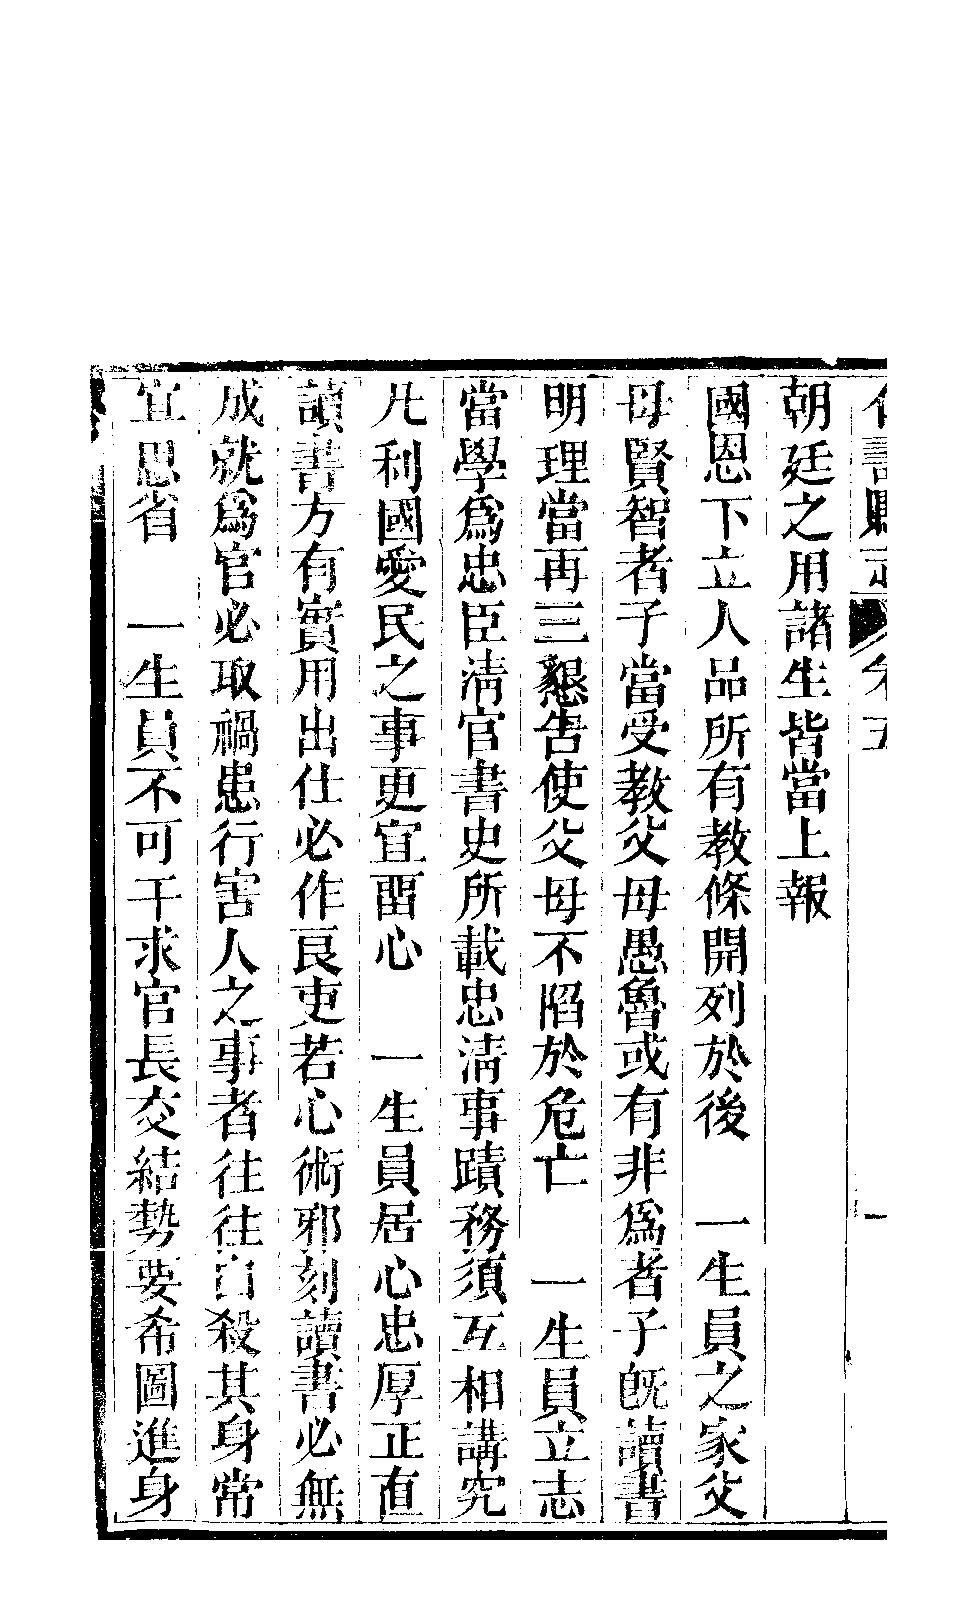 卷五
朝廷之用諸生皆當上報
國恩下立人品所有教條開列於後　一生員之家父
母賢智者子當受教父母愚魯或有非爲者子旣讀書
明理當再三懇告使父母不陷於危亡　一生員立志
當學爲忠臣淸官書史所載忠淸事蹟務須互相講究
凡利國愛民之事更宜畱心　一生員居心忠厚正直
讀書方有實用出仕必作良吏若心術邪刻讀書必無
成就爲官必取禍患行害人之事者往往自殺其身常
宜思省　一生員不可干求官長交結勢要希圖進身